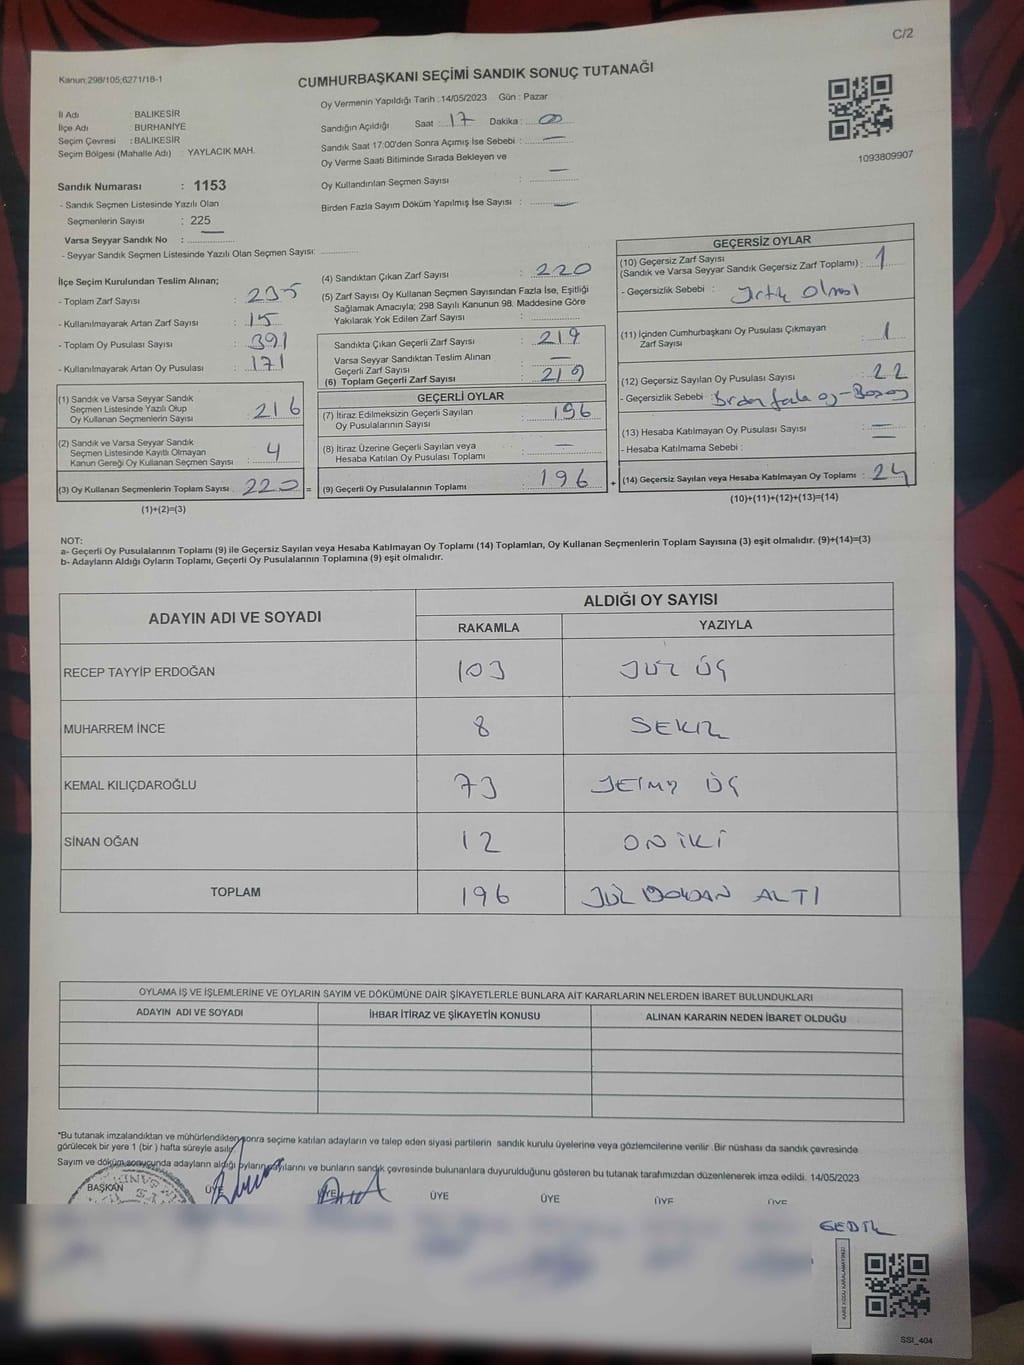 C/2
Kanun;298/105;6271/18-1
CUMHURBAŞKANI SEÇİMİ SANDIK SONUÇ TUTANAĞI
İl Adı : BALIKESİR
İlçe Adı : BURHANİYE
Seçim Çevresi : BALIKESİR
Seçim Bölgesi (Mahalle Adı) : YAYLACIK MAH.
Oy Vermenin Yapıldığı Tarih :14/05/2023 Gün : Pazar
Sandığın Açıldığı Saat : 17 Dakika : 00
Sandık Saat 17:00'den Sonra Açımış İse Sebebi : —
Oy Verme Saati Bitiminde Sırada Bekleyen ve
Oy Kullandırılan Seçmen Sayısı : —
Birden Fazla Sayım Döküm Yapılmış İse Sayısı : —
1093809907
Sandık Numarası : 1153
- Sandık Seçmen Listesinde Yazılı Olan
Seçmenlerin Sayısı : 225
Varsa Seyyar Sandık No : —
- Seyyar Sandık Seçmen Listesinde Yazılı Olan Seçmen Sayısı:
İlçe Seçim Kurulundan Teslim Alınan;
- Toplam Zarf Sayısı : 235
- Kullanılmayarak Artan Zarf Sayısı : 15
- Toplam Oy Pusulası Sayısı : 391
- Kullanılmayarak Artan Oy Pusulası : 171
(1) Sandık ve Varsa Seyyar Sandık
Seçmen Listesinde Yazılı Olup
Oy Kullanan Seçmenlerin Sayısı : 216
(2) Sandık ve Varsa Seyyar Sandık
Seçmen Listesinde Kayıtlı Olmayan
Kanun Gereği Oy Kullanan Seçmen Sayısı : 4
(3) Oy Kullanan Seçmenlerin Toplam Sayısı : 220 =
(1)+(2)=(3)
(4) Sandıktan Çıkan Zarf Sayısı : 220
(5) Zarf Sayısı Oy Kullanan Seçmen Sayısından Fazla İse, Eşitliği
Sağlamak Amacıyla; 298 Sayılı Kanunun 98. Maddesine Göre
Yakılarak Yok Edilen Zarf Sayısı :
Sandıkta Çıkan Geçerli Zarf Sayısı : 219
Varsa Seyyar Sandıktan Teslim Alınan
Geçerli Zarf Sayısı : —
(6) Toplam Geçerli Zarf Sayısı : 219
GEÇERLİ OYLAR
(7) İtiraz Edilmeksizin Geçerli Sayılan
Oy Pusulalarının Sayısı : 196
(8) İtiraz Üzerine Geçerli Sayılan veya
Hesaba Katılan Oy Pusulası Toplamı : —
(9) Geçerli Oy Pusulalarının Toplamı : 196 +
GEÇERSİZ OYLAR
(10) Geçersiz Zarf Sayısı
(Sandık ve Varsa Seyyar Sandık Geçersiz Zarf Toplamı) : 1
- Geçersizlik Sebebi : Yırtık Olması
(11) İçinden Cumhurbaşkanı Oy Pusulası Çıkmayan
Zarf Sayısı : 1
(12) Geçersiz Sayılan Oy Pusulası Sayısı : 22
- Geçersizlik Sebebi : Birden fazla oy-
(13) Hesaba Katılmayan Oy Pusulası Sayısı : —
- Hesaba Katılmama Sebebi : —
(14) Geçersiz Sayılan veya Hesaba Katılmayan Oy Toplamı : 24
(10)+(11)+(12)+(13)=(14)
NOT:
a- Geçerli Oy Pusulalarının Toplamı (9) ile Geçersiz Sayılan veya Hesaba Katılmayan Oy Toplamı (14) Toplamları, Oy Kullanan Seçmenlerin Toplam Sayısına (3) eşit olmalıdır. (9)+(14)=(3)
b- Adayların Aldığı Oyların Toplamı, Geçerli Oy Pusulalarının Toplamına (9) eşit olmalıdır.
ADAYIN ADI VE SOYADI
ALDIĞI OY SAYISI
RAKAMLA YAZIYLA
RECEP TAYYİP ERDOĞAN 103 YÜZ ÜÇ
MUHARREM İNCE 8 SEKİZ
KEMAL KILIÇDAROĞLU 73 YETMİŞ ÜÇ
SİNAN OĞAN 12 ONİKİ
TOPLAM 196 YÜZ DOKSAN ALTI
OYLAMA İŞ VE İŞLEMLERİNE VE OYLARIN SAYIM VE DÖKÜMÜNE DAİR ŞİKAYETLERLE BUNLARA AİT KARARLARIN NELERDEN İBARET BULUNDUKLARI
ADAYIN ADI VE SOYADI İHBAR İTİRAZ VE ŞİKAYETİN KONUSU ALINAN KARARIN NEDEN İBARET OLDUĞU
*Bu tutanak imzalandıktan ve mühürlendikten sonra seçime katılan adayların ve talep eden siyasi partilerin sandık kurulu üyelerine veya gözlemcilerine verilir. Bir nüshası da sandık çevresinde
görülecek bir yere 1 (bir) hafta süreyle asılır.
Sayım ve döküm sonucunda adayların aldığı oyların sayılarını ve bunların sandık çevresinde bulunanlara duyurulduğunu gösteren bu tutanak tarafımızdan düzenlenerek imza edildi. 14/05/2023
BAŞKAN ÜYE ÜYE ÜYE ÜYE ÜYE ÜYE
GEDİK
KARE KODU KARALAMAYINIZ!
SSI_404